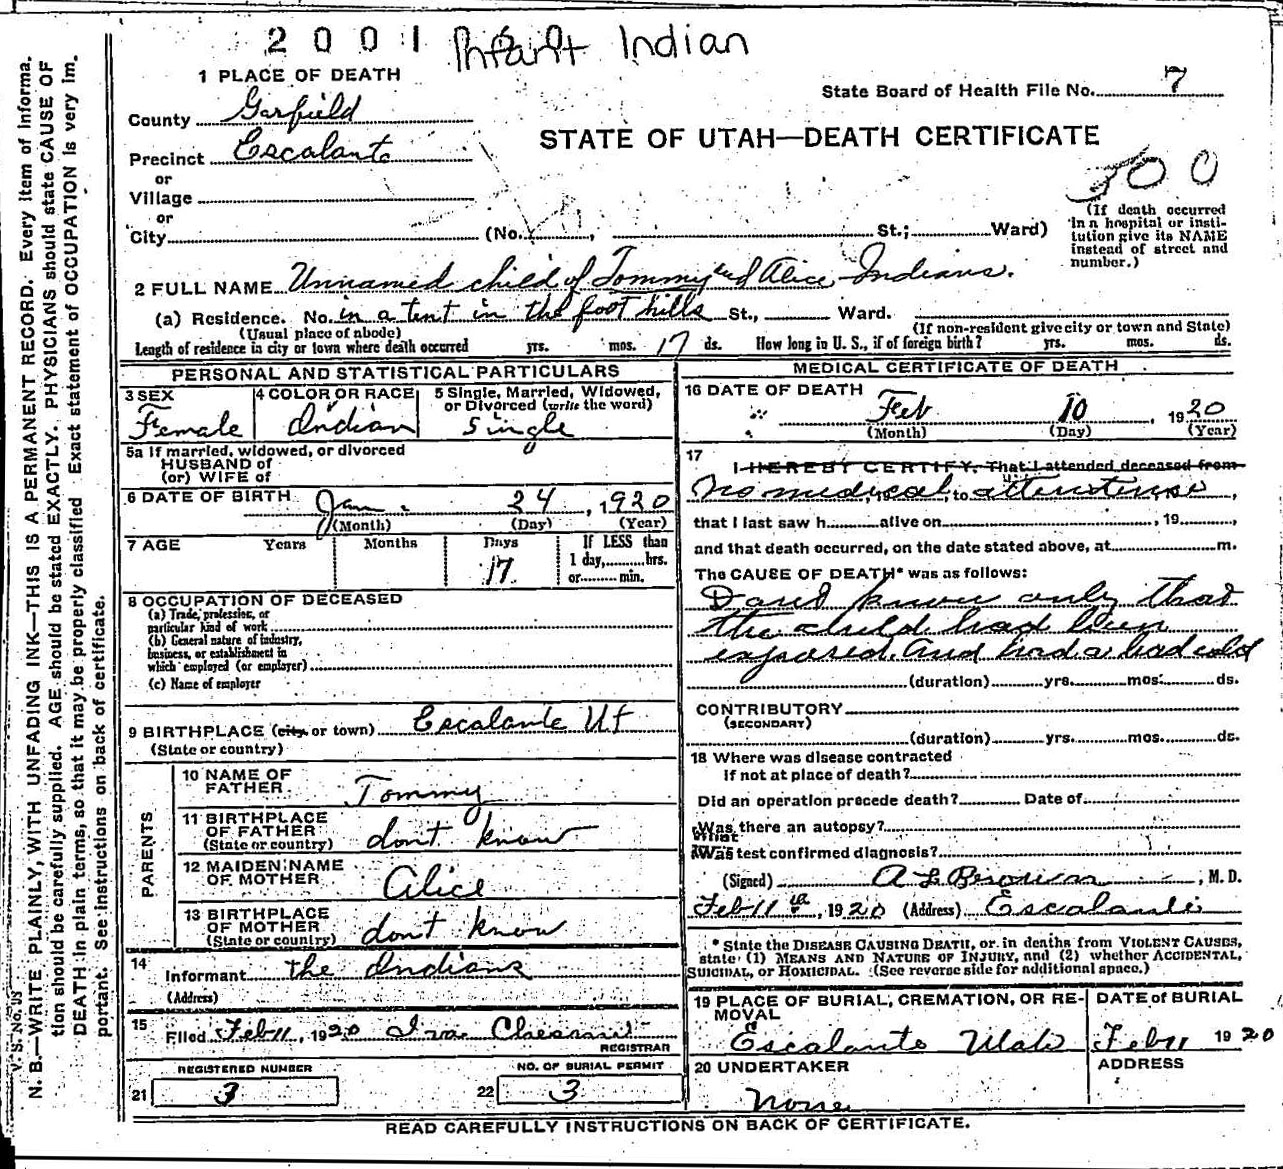 2001 Infant Indian
1 PLACE OF DEATH
State Board of Health File No. 7
County Garfield
STATE OF UTAH—DEATH CERTIFICATE
Precinct Escalante
or
Village
500
or
City (No. , St.; Ward)
(If death occurred
in a hospital or insti-
tution give its NAME
instead of street and
number.)
2 FULL NAME Unnamed child of Tommy and Alice Indians.
(a) Residence. No. in a tent in the foot hills St., Ward.
(Usual place of abode) (If non-resident give city or town and State)
Length of residence in city or town where death occurred yrs. mos. 17 ds. How long in U. S., if of foreign birth? yrs. mos. ds.
PERSONAL AND STATISTICAL PARTICULARS
3 SEX
Female
4 COLOR OR RACE
Indian
5 Single, Married, Widowed,
or Divorced (write the word)
Single
5a If married, widowed, or divorced
HUSBAND of
(or) WIFE of
6 DATE OF BIRTH Jan. 24, 1920
(Month) (Day) (Year)
7 AGE Years Months Days If LESS than
17 1 day, hrs.
or min.
8 OCCUPATION OF DECEASED
(a) Trade, profession, or
particular kind of work
(b) General nature of industry,
business, or establishment in
which employed (or employer)
(c) Name of employer
9 BIRTHPLACE (city or town) Escalante Ut
(State or country)
PARENTS
10 NAME OF
FATHER Tommy
11 BIRTHPLACE
OF FATHER
(State or country) dont know
12 MAIDEN NAME
OF MOTHER Alice
13 BIRTHPLACE
OF MOTHER
(State or country) dont know
14
Informant the Indians
(Address)
15
Filed Feb 11, 1920
REGISTRAR
REGISTERED NUMBER
21 3
NO. OF BURIAL PERMIT
22 3
MEDICAL CERTIFICATE OF DEATH
16 DATE OF DEATH
Feb 10, 1920
(Month) (Day) (Year)
17
I HEREBY CERTIFY, That I attended deceased from
No medical, to
that I last saw h alive on , 19 ,
and that death occurred, on the date stated above, at m.
The CAUSE OF DEATH* was as follows:
know only that
the child had been
exposed. And had a bad cold
(duration) yrs. mos. ds.
CONTRIBUTORY
(SECONDARY)
(duration) yrs. mos. ds.
18 Where was disease contracted
if not at place of death?
Did an operation precede death? Date of
Was there an autopsy?
What
Was test confirmed diagnosis?
(Signed) , M. D.
Feb 11th, 1920 (Address) Escalante
* State the DISEASE CAUSING DEATH, or in deaths from VIOLENT CAUSES,
state (1) MEANS AND NATURE OF INJURY, and (2) whether ACCIDENTAL,
SUICIDAL, or HOMICIDAL. (See reverse side for additional space.)
19 PLACE OF BURIAL, CREMATION, OR RE-
MOVAL
Escalante Utah
DATE of BURIAL
Feb 11 1920
20 UNDERTAKER
None
ADDRESS
READ CAREFULLY INSTRUCTIONS ON BACK OF CERTIFICATE.
V. S. No.
N. B.—WRITE PLAINLY, WITH UNFADING INK—THIS IS A PERMANENT RECORD. Every item of informa-
tion should be carefully supplied. AGE should be stated EXACTLY. PHYSICIANS should state CAUSE OF
DEATH in plain terms, so that it may be properly classified. Exact statement of OCCUPATION is very im-
portant. See instructions on back of certificate.